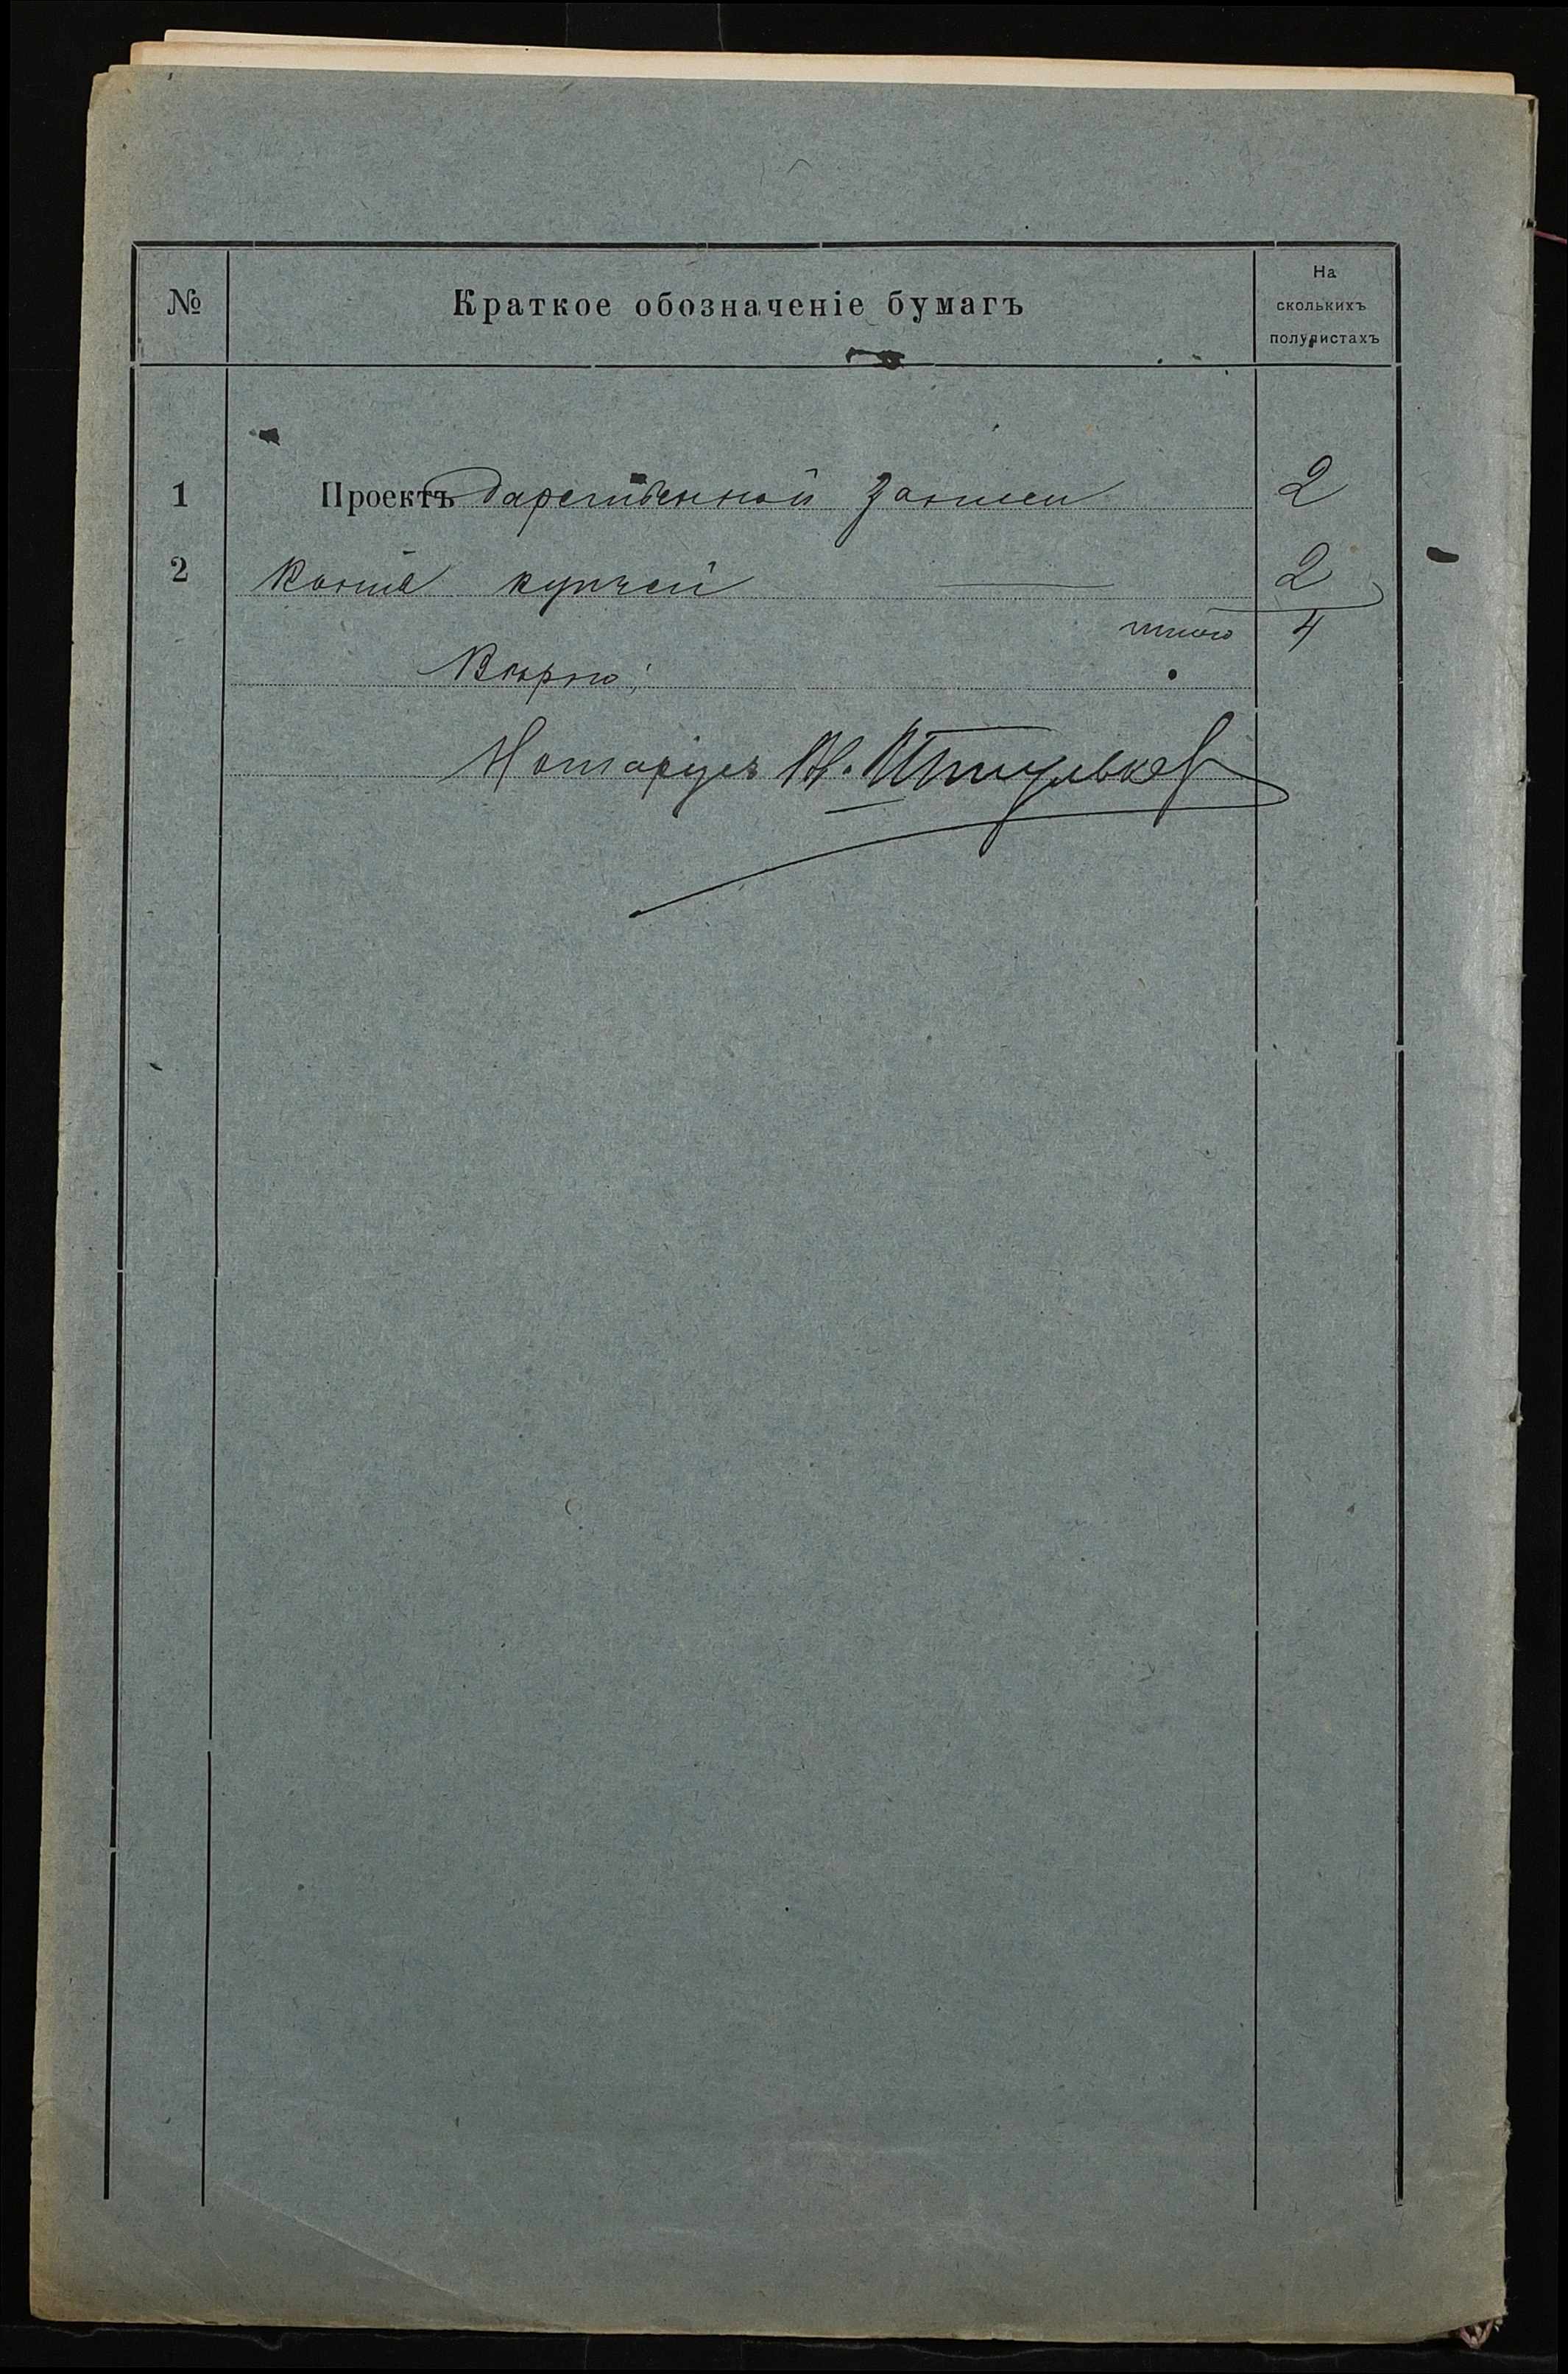 № Краткое обозначеніе бумагъ На
сколькихъ
полулистахъ
1 Проектъ дарственной записи 2
2 Копія купчей 2
итого 4
Вѣрно:
Нотаріусъ